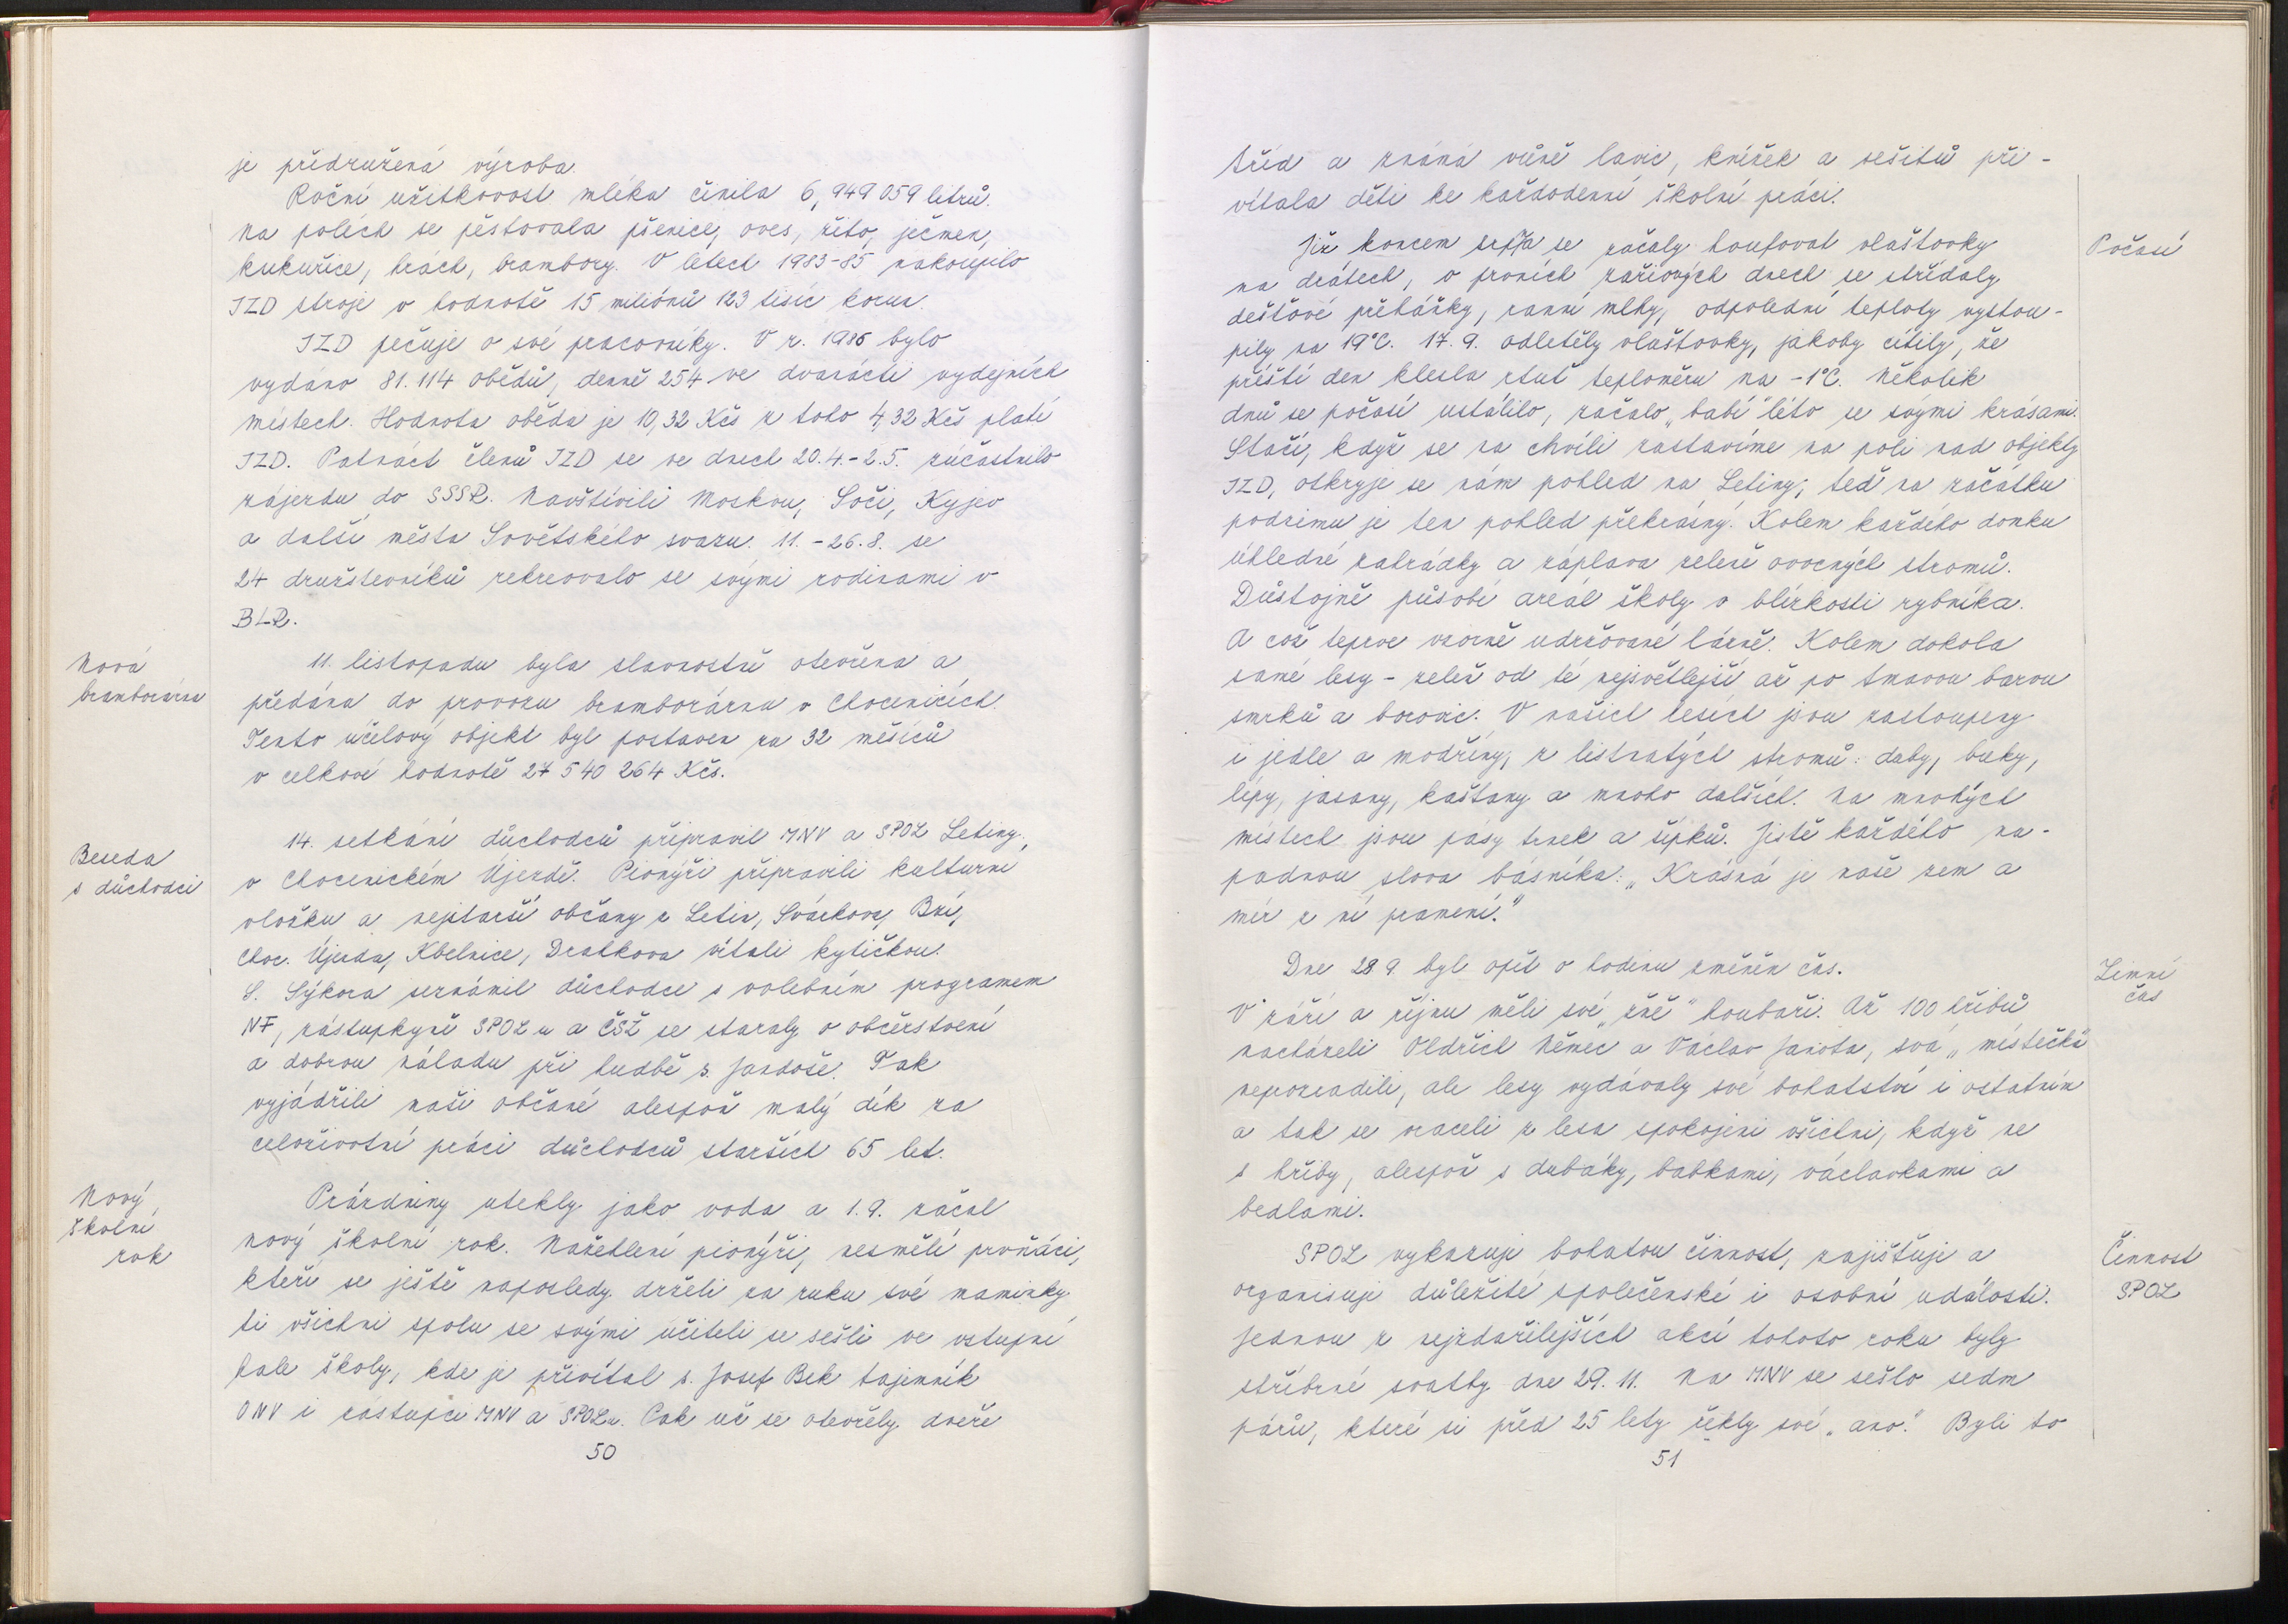 je přidružená výroba.
Roční užitkovost mléka činila 6,949 059 litrů.
Na polích se pěstovala pšenice, oves, žito, ječmen,
kukuřice, hrách, brambory. V letech 1983-85 nakoupilo
JZD stroje v hodnotě 15 miliónů 123 tisíc korun.
JZD pečuje o své pracovníky. V r. 1985 bylo
vydáno 81.114 obědů, denně 254 ve dvanácti výdejních
místech. Hodnota oběda je 10,32 Kčs z toho 4,32 Kčs platí
JZD. Patnáct členů JZD se ve dnech 20.4.-2.5. zúčastnilo
zájezdu do SSSR. Navštívili Moskvu, Soči, Kyjev
a další města Sovětského svazu. 11.-26.8. se
24 družstevníků rekreovalo se svými rodinami v
BLR.
Nová
bramborárna
11. listopadu byla slavnostně otevřena a
předána do provozu bramborárna v Chocenicích.
Tento účelový objekt byl postaven za 32 měsíců
v celkové hodnotě 27 540 264 Kčs.
Beseda
s důchodci
14. setkání důchodců připravil MNV a SPOZ Letiny,
v Chocenickém Újezdě. Pionýři připravili kulturní
vložku a nejstarší občany z Letin, Svárkova, Bzí,
Choc. Újezda, Kbelnice, Drahkova vítali kytičkou.
S. Sýkora seznámil důchodce s volebním programem
NF, zástupkyně SPOZu a ČSŽ se staraly o občerstvení
a dobrou náladu při hudbě s. Jandoše. Tak
vyjádřili naši občané alespoň malý dík za
celoživotní práci důchodců starších 65 let.
Nový
školní
rok
Prázdniny utekly jako voda a 1.9. začal
nový školní rok. Nažehlení pionýři, nesmělí prvňáci,
kteří se ještě naposledy drželi za ruku své maminky
ti všichni spolu se svými učiteli se sešli ve vstupní
hale školy, kde je přivítal s. Josef Bek tajemník
ONV i zástupci MNV a SPOZu. Pak už se otevřely dveře
50
tříd a známá vůně lavic, knížek a sešitů při-
vítala děti ke každodenní školní práci.
Počasí
Již koncem srpna se začaly houfovat vlaštovky
na drátech, v prvních zářiových dnech se střídaly
dešťové přeháňky, ranní mlhy, odpolední teploty vystou-
pily na 19°C. 17.9. odletěly vlaštovky, jakoby cítily, že
příští den klesla rtuť teploměru na -1°C. Několik
dnů se počasí ustálilo, začalo „babí" léto se svými krásami.
Stačí, když se na chvíli zastavíme na poli nad objekty
JZD, otkryje se nám pohled na Letiny; teď na začátku
podzimu je ten pohled překrásný. Kolem každého domku
úhledné zahrádky a záplava zeleně ovocných stromů.
Důstojně působí areál školy v blízkosti rybníka.
A což teprve vzorně udržované lázně. Kolem dokola
samé lesy - zeleň od té nejsvětlejší až po tmavou barvu
smrků a borovic. V našich lesích jsou zastoupeny
i jedle a modříny, z listnatých stromů: duby, buky,
lípy, jasany, kaštany a mnoho dalších. Na mnohých
místech jsou pásy trnek a šípků. Jistě každého na-
padnou slova básníka: „Krásná je naše zem a
mír z ní pramení."
Zimní
čas
Dne 28 9. byl opět o hodinu změněn čas.
V září a říjnu měli své „žně" houbaři. Až 100 hřibů
nacházeli Oldřich Němec a Václav Janota, svá „místečka"
neprozradili, ale lesy vydávaly své bohatství i ostatním
a tak se vraceli z lesa spokojeni všichni, když ne
s hřiby, alespoň s dubáky, babkami, václavkami a
bedlami.
Činnost
SPOZ
SPOZ vykazuje bohatou činnost, zajišťuje a
organisuje důležité společenské i osobní události.
Jednou z nejzdařilejších akcí tohoto roku byly
stříbrné svatby dne 29.11. Na MNV se sešlo sedm
párů, které si před 25 lety řekly své „ano." Byli to
51